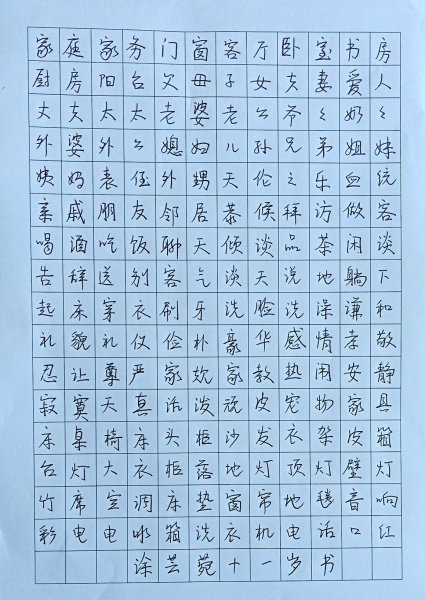 家庭家务门窗客厅卧室书房
厨房阳台父母子女夫妻爱人
丈夫太太老婆老公爷々奶々
外婆外公媳妇儿孙兄弟姐妹
姨妈表侄外甥天伦之乐血统
亲戚朋友邻居恭候拜访做客
喝酒吃饭聊天倾谈品茶闲谈
告辞送别客气谈天说地躺下
起床穿衣刷牙洗脸洗澡谦和
礼貌礼仪俭朴豪华感情孝敬
忍让尊严家规家教热闹安静
寂寞天真活泼顽皮宠物家具
床桌椅床头柜沙发衣架皮箱
台灯大衣柜落地灯顶灯壁灯
竹席空调床垫窗帘地毯音响
彩电电冰箱洗衣机电话口红
涂芸菀十一岁书